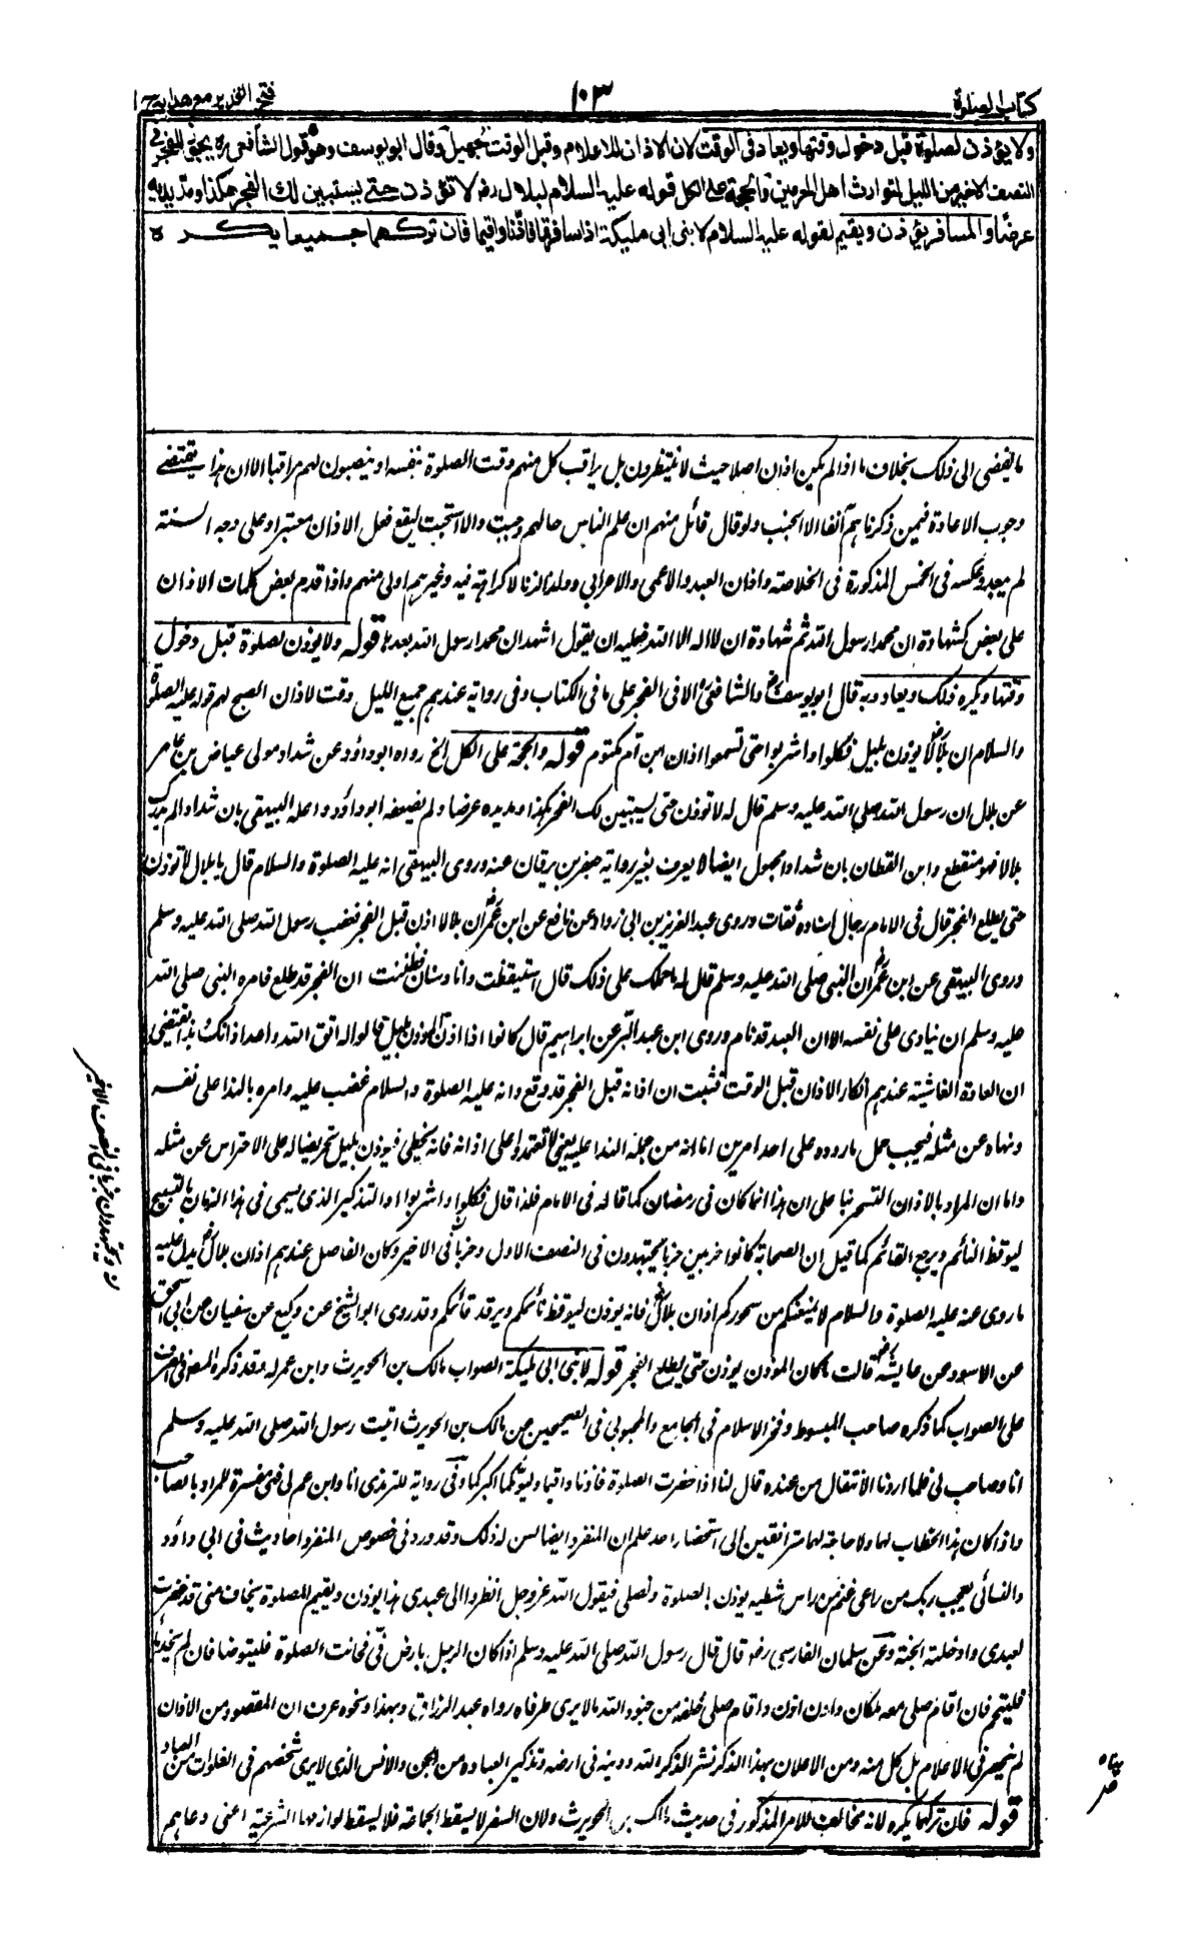 كتاب الصلوة
١٠٣
فتح القدير مع هدايه ج ١
ولا يؤذن لصلوة قبل دخول وقتها ويعاد فى الوقت لان الاذان للاعلام وقبل الوقت تجهيل وقال ابو يوسف وهو قول الشافعى رح يجوز للفجر فى
النصف الاخير من الليل لتوارث اهل الحرمين والحجة على الكل قوله عليه السلام لبلال رضـ لا تؤذن حتے يستبين لك الفجر هكذا ومد يديه
عرضًا والمسافر يؤذن ويقيم لقوله عليه السلام لابنى ابى مليكة اذا سافرتما فاذّنا واقيما فان تركهما جميعا يكره
ما يفضى الى ذلك بخلاف ما اذا لم يكن اذان اصلا حيث لا ينتظرون بل يراقب كل منهم وقت الصلوة بنفسه او ينصبون لهم مراقبا الا ان هذا يقتضے
وجوب الاعادة فيمن ذكرناهم آنفا الا الجنب ولو قال قائل منهم ان علم الناس حالهم وجبت والا استحبت ليقع فعل الاذان معتبرا وعلى وجه السنة
لم يبعد وعكسه فى الخمس المذكورة فى الخلاصة واذان العبد والاعمى والاعرابي وولد الزنا لا كراهة فيه وغيرهم اولى منهم واذا قدم بعض كلمات الاذان
على بعض كشهادة ان محمدا رسول الله ثم شهادة ان لا اله الا الله فعليه ان يقول اشهد ان محمدا رسول الله بعدها قوله ولا يؤذن لصلوة قبل دخول
وقتها ويكره ذلك ويعاد وبه قال ابو يوسف رح والشافعى رح الا فى الفجر على ما فى الكتاب وفى رواية عندهم جميع الليل وقت لاذان الصبح لهم قوله عليه الصلوة
والسلام ان بلالا يؤذن بليل فكلوا واشربوا حتى تسمعوا اذان ابن ام مكتوم قوله والحجة على الكل الخ رواه ابو داؤد عن شداد مولى عياض بن عامر
عن بلال ان رسول الله صلى الله عليه وسلم قال له لا تؤذن حتى يستبين لك الفجر هكذا ومد يده عرضا ولم يضعفه ابو داؤد واعله البيهقى بان شدادا لم يدرك
بلالا فهو منقطع وابن القطان بان شدادا مجهول ايضا لا يعرف بغير رواية جعفر بن برقان عنه وروى البيهقى انه عليه الصلوة والسلام قال يا بلال لا تؤذن
حتى يطلع الفجر قال فى الامام رجال اسناده ثقات وروى عبد العزيز بن ابى رواد عن نافع عن ابن عمر ان بلالا اذن قبل الفجر فغضب رسول الله صلى الله عليه وسلم
وروى البيهقى عن ابن عمر ان النبى صلى الله عليه وسلم قال له ما حملك على ذلك قال استيقظت وانا وسنان فظننت ان الفجر قد طلع فامره النبى صلى الله
عليه وسلم ان ينادى على نفسه الا ان العبد قد نام وروى ابن عبد البر عن ابراهيم قال كانوا اذا اذن المؤذن بليل قالوا له اتق الله واعد اذانك وهذا يقتضى
ان العادة الفاشية عندهم انكار الاذان قبل الوقت فثبت ان اذانه قبل الفجر قد وقع وانه عليه الصلوة والسلام غضب عليه وامره بالندا على نفسه
ونهاه عن مثله فيجب حمل ما رووه على احد امرين اما انه من جملة الندا عليه يعنى لا تعتمدوا على اذانه فانه يخطى فيؤذن بليل تحريضا له على الاحتراس عن مثله
واما ان المراد بالاذان التسحير بناء على ان هذا انما كان فى رمضان كما قاله فى الامام فلذا قال فكلوا واشربوا او التذكير الذى يسمى فى هذا الزمان بالتسبيح
ليوقظ النائم ويرجع القائم كما قيل ان الصحابة كانوا حزبين حزبا يجتهدون فى النصف الاول وحزبا فى الاخير وكان الفاصل عندهم اذان بلال يدل عليه
ما روى عنه عليه الصلوة والسلام لا يمنعنكم من سحوركم اذان بلال فانه يؤذن ليوقظ نائمكم ويرقد قائمكم وقد روى ابو الشيخ عن وكيع عن سفيان عن ابى اسحق
عن الاسود عن عايشة قالت ما كان المؤذن يؤذن حتى يطلع الفجر قوله لابنى ابى مليكة الصواب مالك بن الحويرث وابن عم له وقد ذكره المصنف فى الصرف
على الصواب كما ذكره صاحب المبسوط وفخر الاسلام فى الجامع والمحبوبى فى الصحيحين عن مالك بن الحويرث اتيت رسول الله صلى الله عليه وسلم
انا وصاحب لى فلما اردنا الانتقال من عنده قال لنا اذا حضرت الصلوة فاذنا واقيما وليؤمكما اكبركما وفى رواية للترمذى انا وابن عم لى فهى مفسرة للمراد بالصاحب
واذا كان هذا الخطاب لهما ولا حاجة لهما مترافقين الى استحضار احد علم ان المنفرد ايضا يسن له ذلك وقد ورد فى خصوص المنفرد احاديث فى ابى داؤد
والنسائى يعجب ربك من راعى غنم فى راس شظية يؤذن بالصلوة ويصلى فيقول الله عز وجل انظروا الى عبدى هذا يؤذن ويقيم للصلوة يخاف منى قد غفرت
لعبدى وادخلته الجنة وعن سلمان الفارسى رضـ قال قال رسول الله صلى الله عليه وسلم اذا كان الرجل بارض فئ فحانت الصلوة فليتوضا فان لم يجد ماء
فليتيمم فان اقام صلى معه ملكان وان اذن واقام صلى خلفه من جنود الله ما لا يرى طرفاه رواه عبد الرزاق وبهذا ونحوه عرف ان المقصود من الاذان
لم ينحصر فى الاعلام بل كل منه ومن الاعلان بهذا الذكر نشر الذكر الله ودينه فى ارضه وتذكير العباده من الجن والانس الذى لا يرى شخصهم فى الفلوات من العباد
قوله فان تركهما يكره لانه مخالف للامر المذكور فى حديث مالك بن الحويرث ولان السفر لا يسقط الجماعة فلا يسقط لوازمها الشرعية اعنى دعاهم